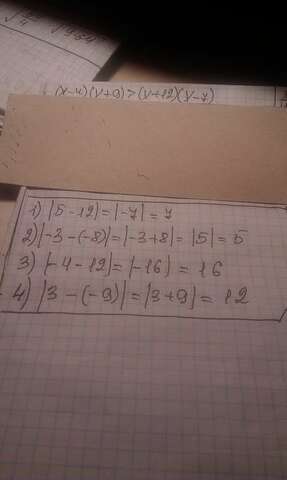 (y-4)(y+9)>(y+12)(y-7)
1) |5-12|=|-7|=7
2) |-3-(-8)|=|-3+8|=|5|=5
3) |-4-12|=|-16|=16
4) |3-(-9)|=|3+9|=12